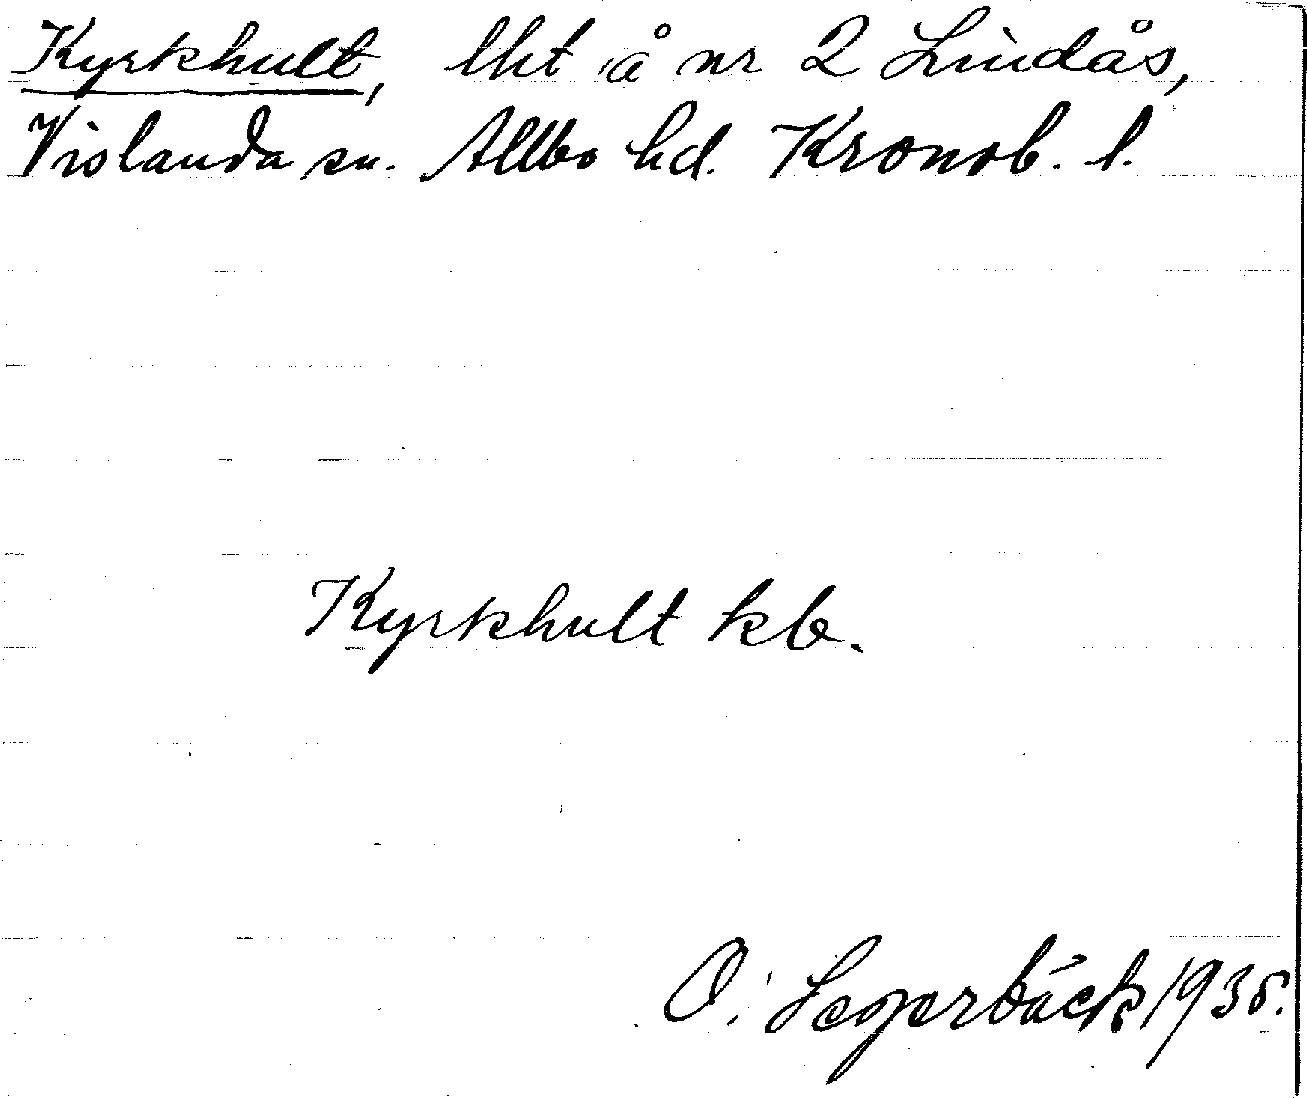 Kyrkhult, lht å nr 2 Lindås,
Vislanda sn. Allbo hd. Kronob. l.
Kyrkhult kb.
O. Segerbäck 1935.